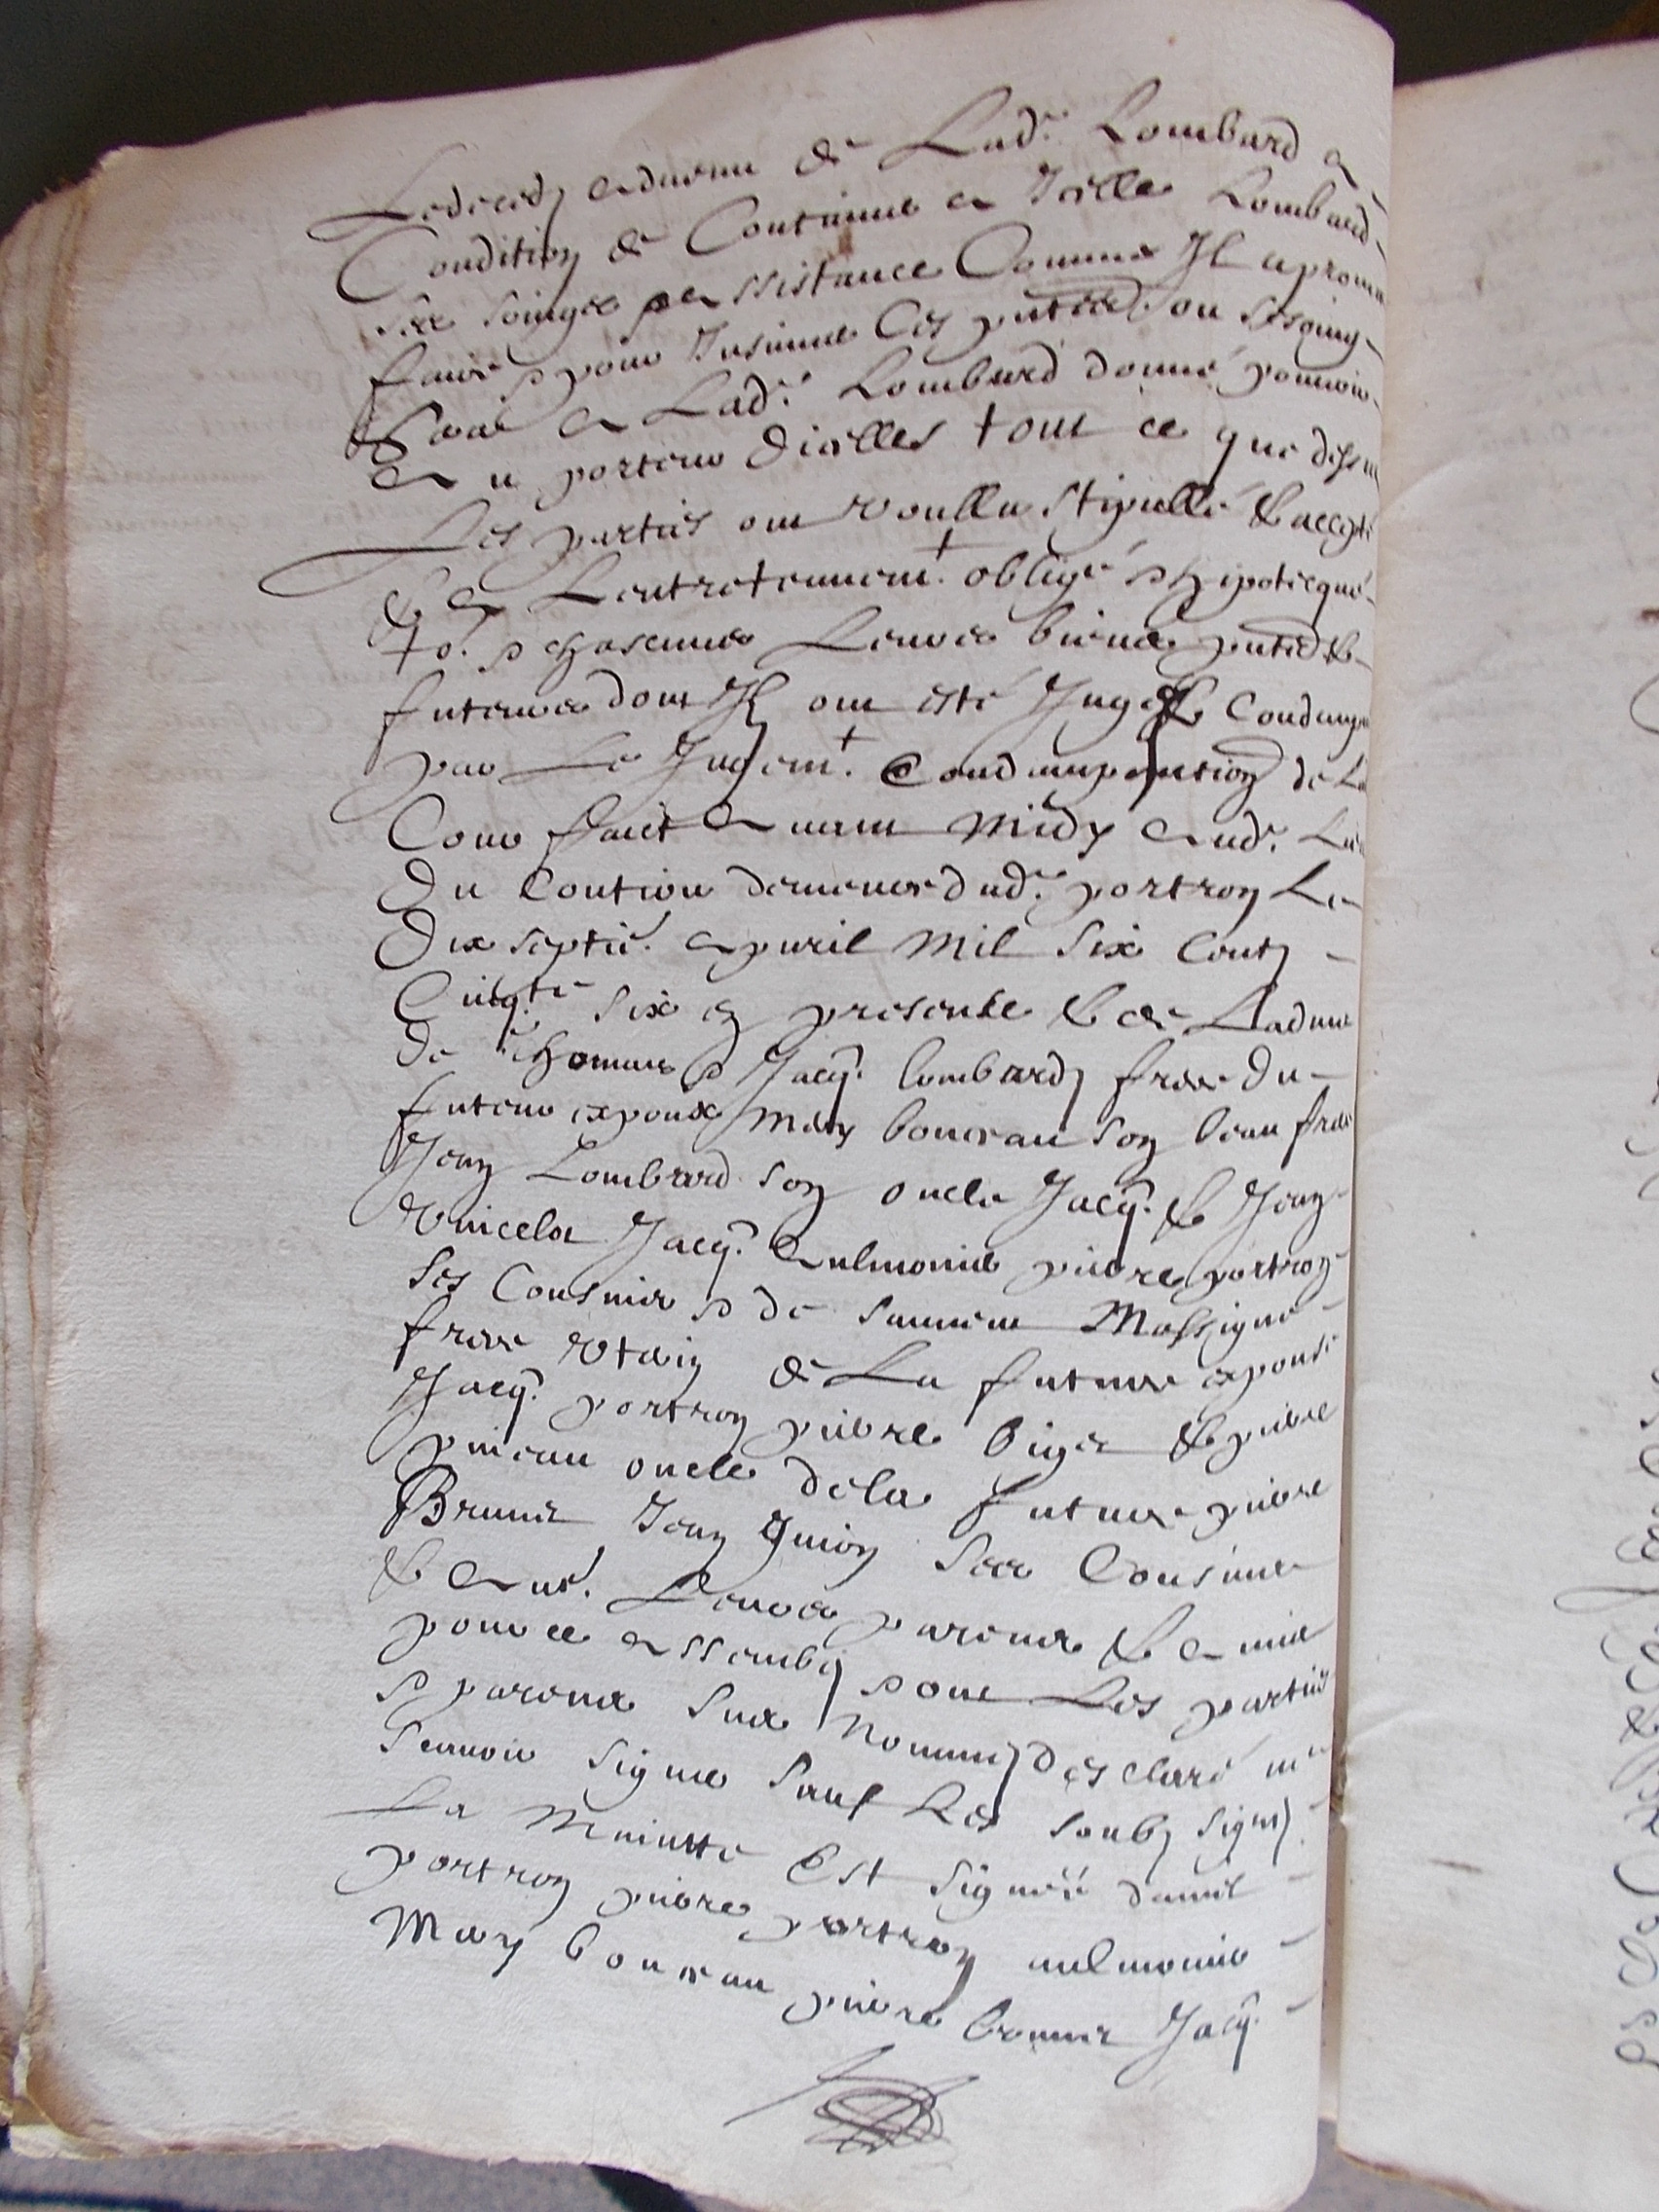 Ledeceds advenu de Lad.e Lombard a
Condition de Continuer a Icelle Lombard
ses soings assistance Comme Il a promis
faire & pour Insinuer Ces pntes ou besoing
Sera a Lad.e Lombard donné pouvoir
au porteur dicelles tout ce que dessus
Les parties ont voullu stipullé & accepté
& a Lentretennem.t obligé & hipotecqué
to.s & chascuns Leurs biens pntes &
futeurs dont Ilz ont esté Jugés & Condampnés
par Le Jugem.t Condampnation de La
Cour faict avant Midy aud.
Du Coutiou demeure dud. portron Le
Dix septie. apvril Mil Six Centz
Cinqte six en presence & de Ladvis
De Thomas & Jacq. lombardz freres du
futeur expoux Mary boureau son beau frere
Jean Lombard son oncle Jacq. & Jean
Jacq. Aulmonier pierre portron
Ses Cousins & de
frere utain de La future expouse
Jacq. portron pierre & pierre
pineau oncle dela future pierre
Brunet Jean Guion Ses Cousins
& au.t Leurs parens & amis
pour ce assemblez & ont Les parties
& parens sus nommez desclaré ne
scavoir signer sauf Les soubz signez
La Minutte Est signée daniel
portron pierre portron aulmonier
Mary boureau pierre brunet Jacq.